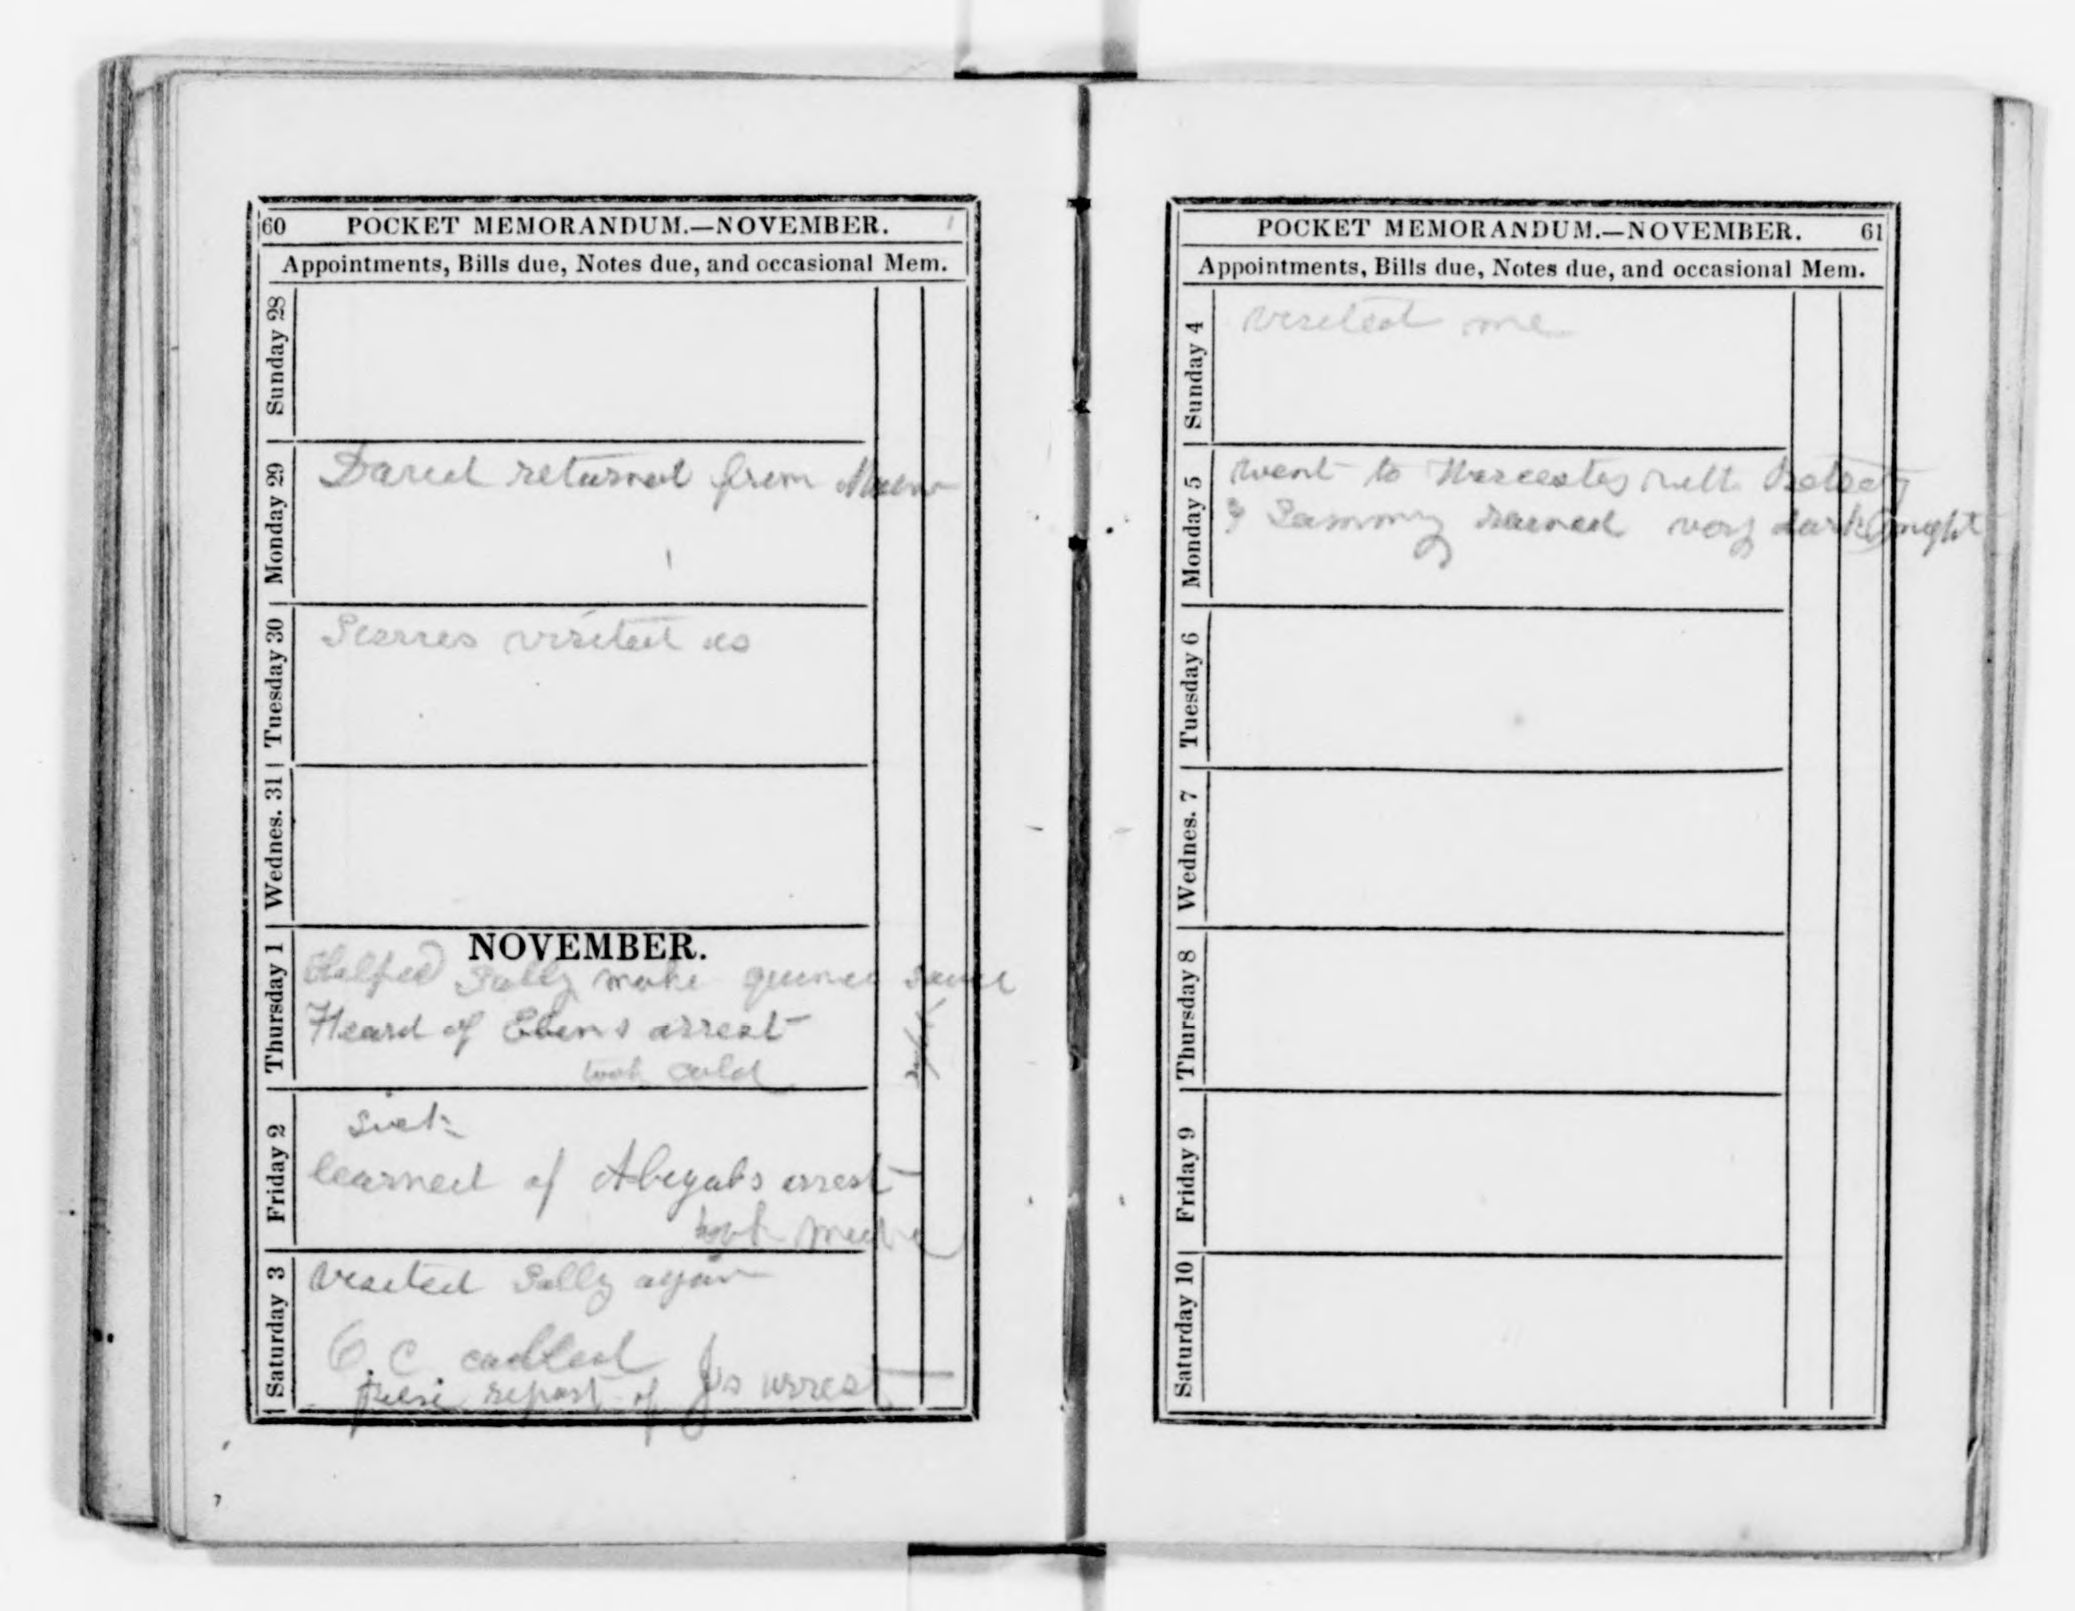 60 POCKET MEMORANDUM.—NOVEMBER.
Appointments, Bills due, Notes due, and occasional Mem.
Sunday 28
Monday 29
returned from
Tuesday 30
visited us
Wednes. 31
NOVEMBER.
Thursday 1
Helped Sally make quince sauce
Heard of Ebens arrest
took cold
Friday 2
sick
learned of Abegals arrest
took
Saturday 3
visited Sally again
C. C called
report of Js arrest
POCKET MEMORANDUM.—NOVEMBER. 61
Appointments, Bills due, Notes due, and occasional Mem.
Sunday 4
visited me
Monday 5
went to Worcester with Betsey
& Sammy rained very dark night
Tuesday 6
Wednes. 7
Thursday 8
Friday 9
Saturday 10